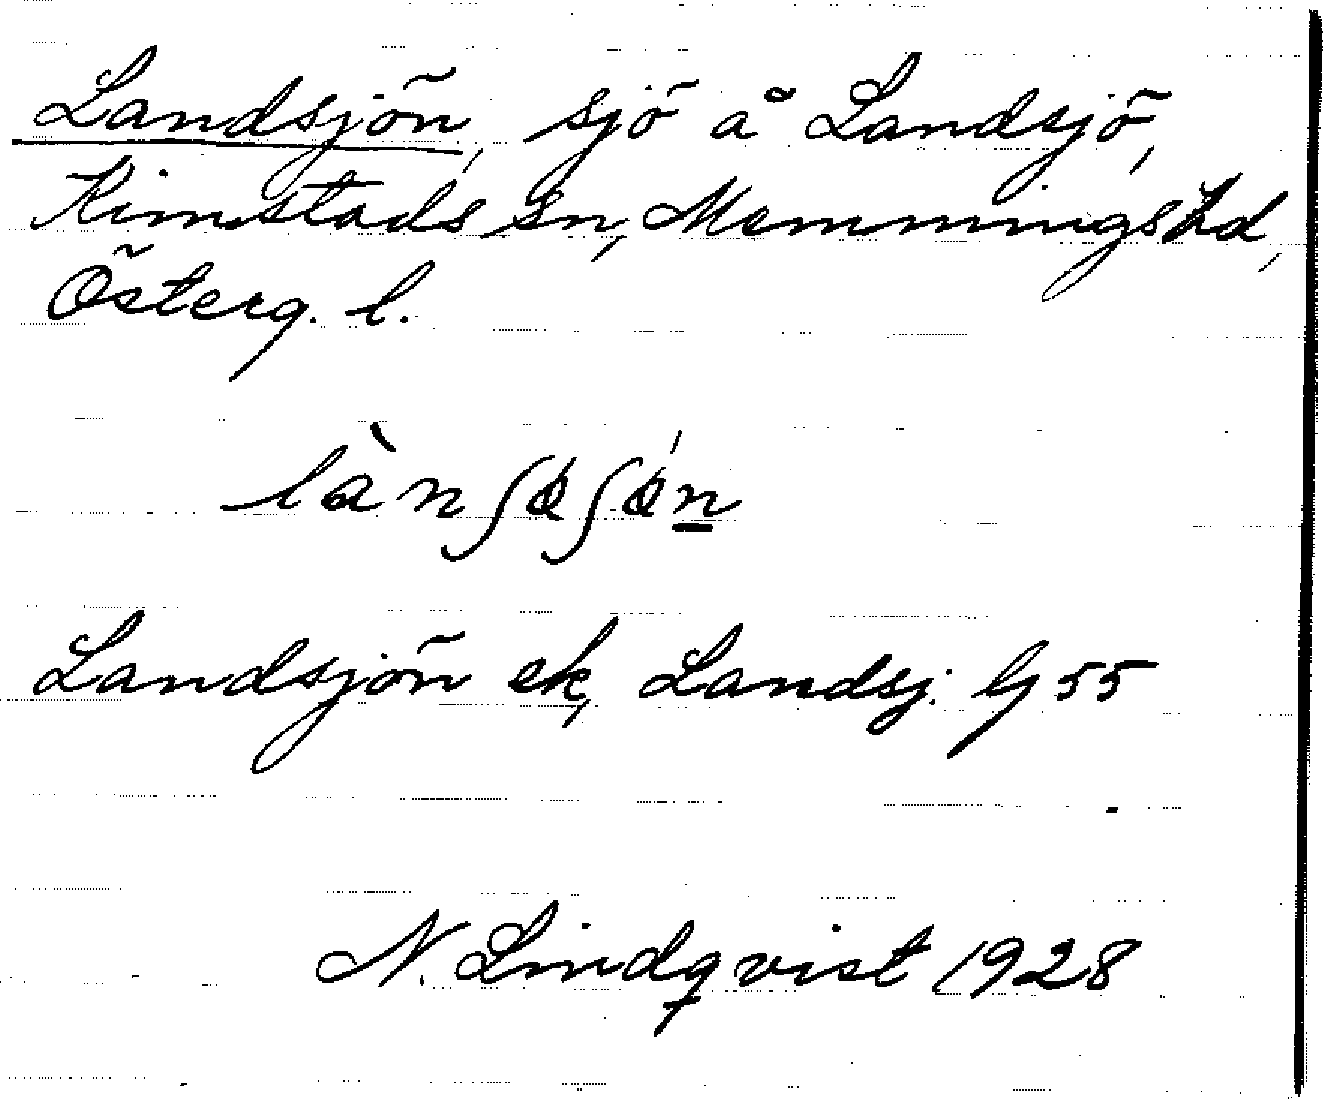 Landsjön, sjö å Landsjö,
Kimstads sn, Memmings hd,
Österg. l.
lànʃøʃǿn
Landsjön ek, Landsj. G 55
N. Lindqvist 1928